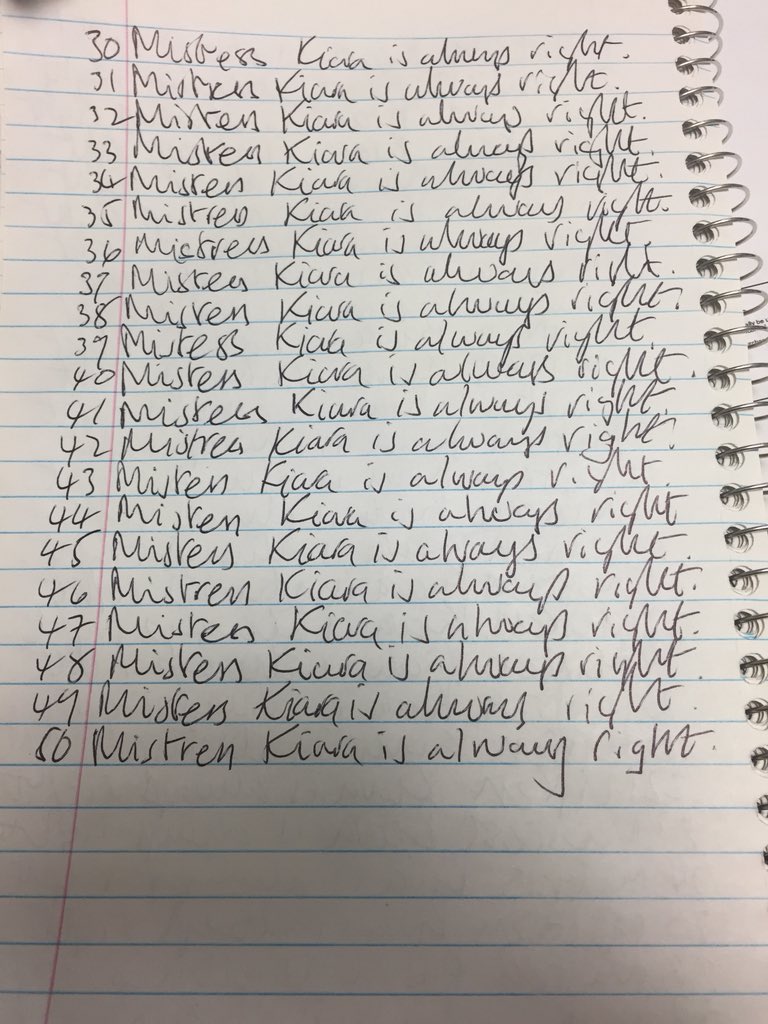 30 Mistress Kiara is always right.
31 Mistress Kiara is always right.
32 Mistress Kiara is always right.
33 Mistress Kiara is always right.
34 Mistress Kiara is always right.
35 Mistress Kiara is always right.
36 Mistress Kiara is always right.
37 Mistress Kiara is always right.
38 Mistress Kiara is always right.
39 Mistress Kiara is always right.
40 Mistress Kiara is always right.
41 Mistress Kiara is always right.
42 Mistress Kiara is always right.
43 Mistress Kiara is always right.
44 Mistress Kiara is always right
45 Mistress Kiara is always right.
46 Mistress Kiara is always right.
47 Mistress Kiara is always right.
48 Mistress Kiara is always right.
49 Mistress Kiara is always right.
50 Mistress Kiara is always right.